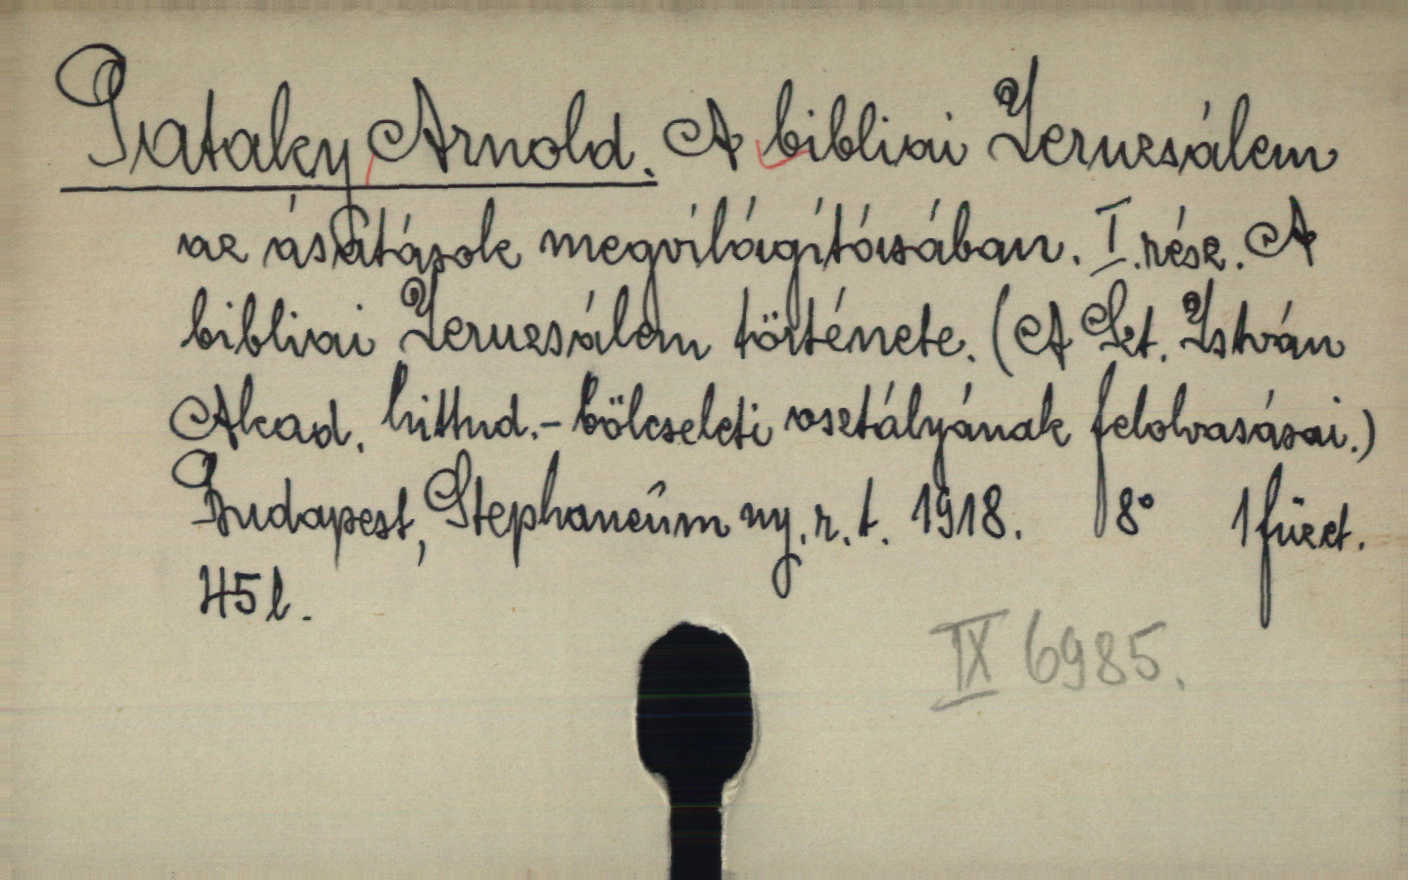 Pataky Arnold. A bibliai Jeruzsálem
az ásatások megvilágításában. I. rész. A
bibliai Jeruzsálem története. (A Szt. István
Akad. hittud.- bölcseleti osztályának felolvasásai.)
Budapest, Stephaneûm ny. r. t. 1918. 8° 1 füzet.
45 l.
IX 6985.